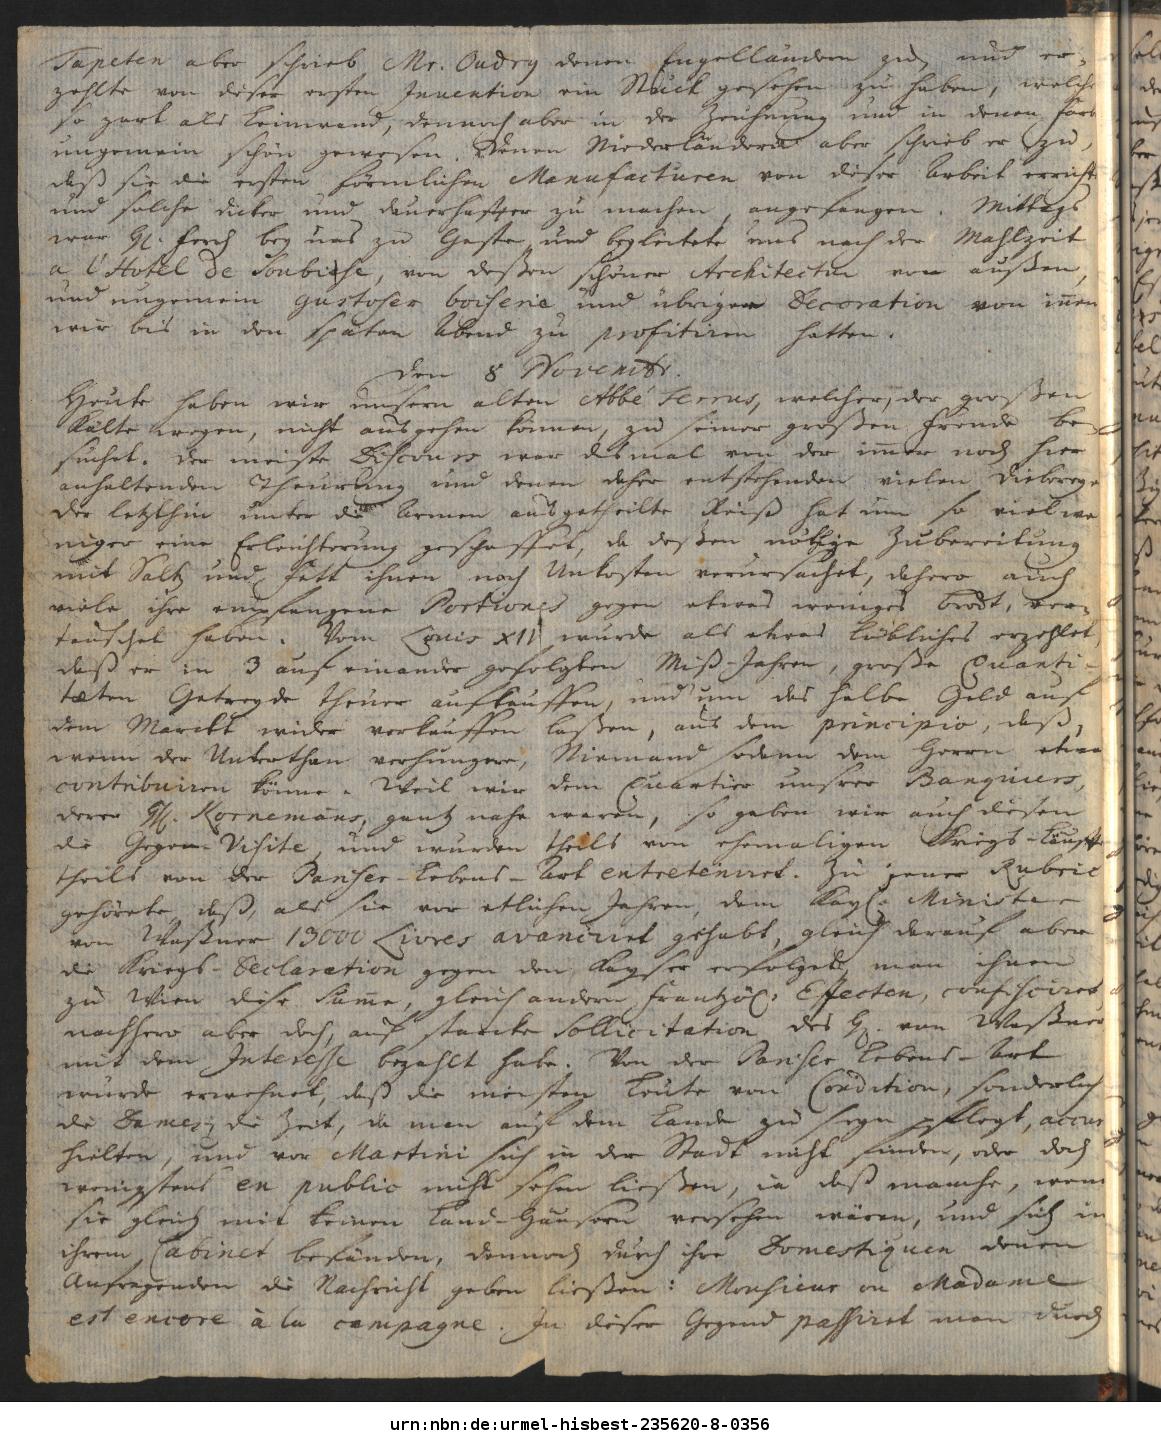 Tapeten aber schrieb Mr. Oudry denen Engelländern zu, und er-
zehlte von dieser ersten Invention ein Stück gesehen zu haben, welche
so zart als Leinwand, dennoch aber in der Zeichnung und in denen Farb
ungemein schön gewesen. Denen Niederländern aber schrieb er zu,
daß sie die ersten förmlichen Manufacturen von dieser Arbeit erricht
und solche dicker und dauerhafter zu machen, angefangen. Mittags
war H. Ferch bey uns zu Gaste und begleitete uns nach der Mahlzeit
a l'Hotel de Soubise, von deßen schöner Architectur von außen,
und ungemein gustoser boiserie und übrigen Decoration von innen
wir bis in den späten Abend zu profitiren hatten.
den 8 Novembr.
Heute haben wir unsern alten Abbé Serrus, welcher, der großen
Kälte wegen, nicht ausgehen können, zu seiner großen Freude be-
suchet. Der meiste Discours war dismal von der immer noch hier
anhaltenden Theurung und denen daher entstehenden vielen Dieberey
Der letzthin unter die Armen ausgetheilte Reiß hat um so viel we
niger eine Erleichterung geschaffet, da deßen nöthige Zubereitung
mit Saltz und Fett ihnen noch Unkosten verursachet, dahero auch
viele ihre empfangene Portiones gegen etwas weniges brodt, ver-
tauschet haben. Vom Louis XII wurde als etwas löbliches erzehlet,
daß er in 3 auf einander gefolgten Miß-Jahren, große Quanti-
tæten Getreyde theuer aufkauffen, und um das halbe Geld auf
dem Marckt wider verkauffen laßen, aus dem principio, daß,
wenn der Unterthan verhungere, Niemand sodann dem Herrn etwas
contribuiren könne. Weil wir dem Quartier unsrer Banquiers,
derer HH. Kornemans, gantz nahe waren, so gaben wir auch diesen
die Gegen-Visite, und wurden theils von ehemaligen Kriegs-Läufft
theils von der Pariser-Lebens-Art entreteniret. Zu jener Rubric
gehörete, daß, als sie vor etlichen Jahren, dem Kayl. Minister
von Waßner 13000 Livres avanciret gehabt, gleich darauf aber
die Kriegs-Declaration gegen den Kayser erfolget, man ihnen
zu Wien diese Summe, gleich andern Frantzös. Effecten, confisciret
nachhero aber doch, auf starcke Sollicitation des H. von Waßner
mit dem Interesse bezahlt habe. Von der Pariser Lebens-Art
wurde erwehnet, daß die meisten Leute von Condition, sonderlich
die Dames, die Zeit, da man auf dem Lande zu seyn pflegt, accur
hielten, und vor Martini sich in der Stadt nicht finden, oder doch
wenigstens en public nicht sehen ließen, ja daß manche, wenn
sie gleich mit keinen Land-Häusern versehen wären, und sich in
ihrem Cabinet befänden, dennoch durch ihre Domestiquen denen
Anfragenden die Nachricht geben ließen: Monsieur ou Madame
est encore à la campagne. In dieser Gegend passiret man durch
urn:nbn:de:urmel-hisbest-235620-8-0356